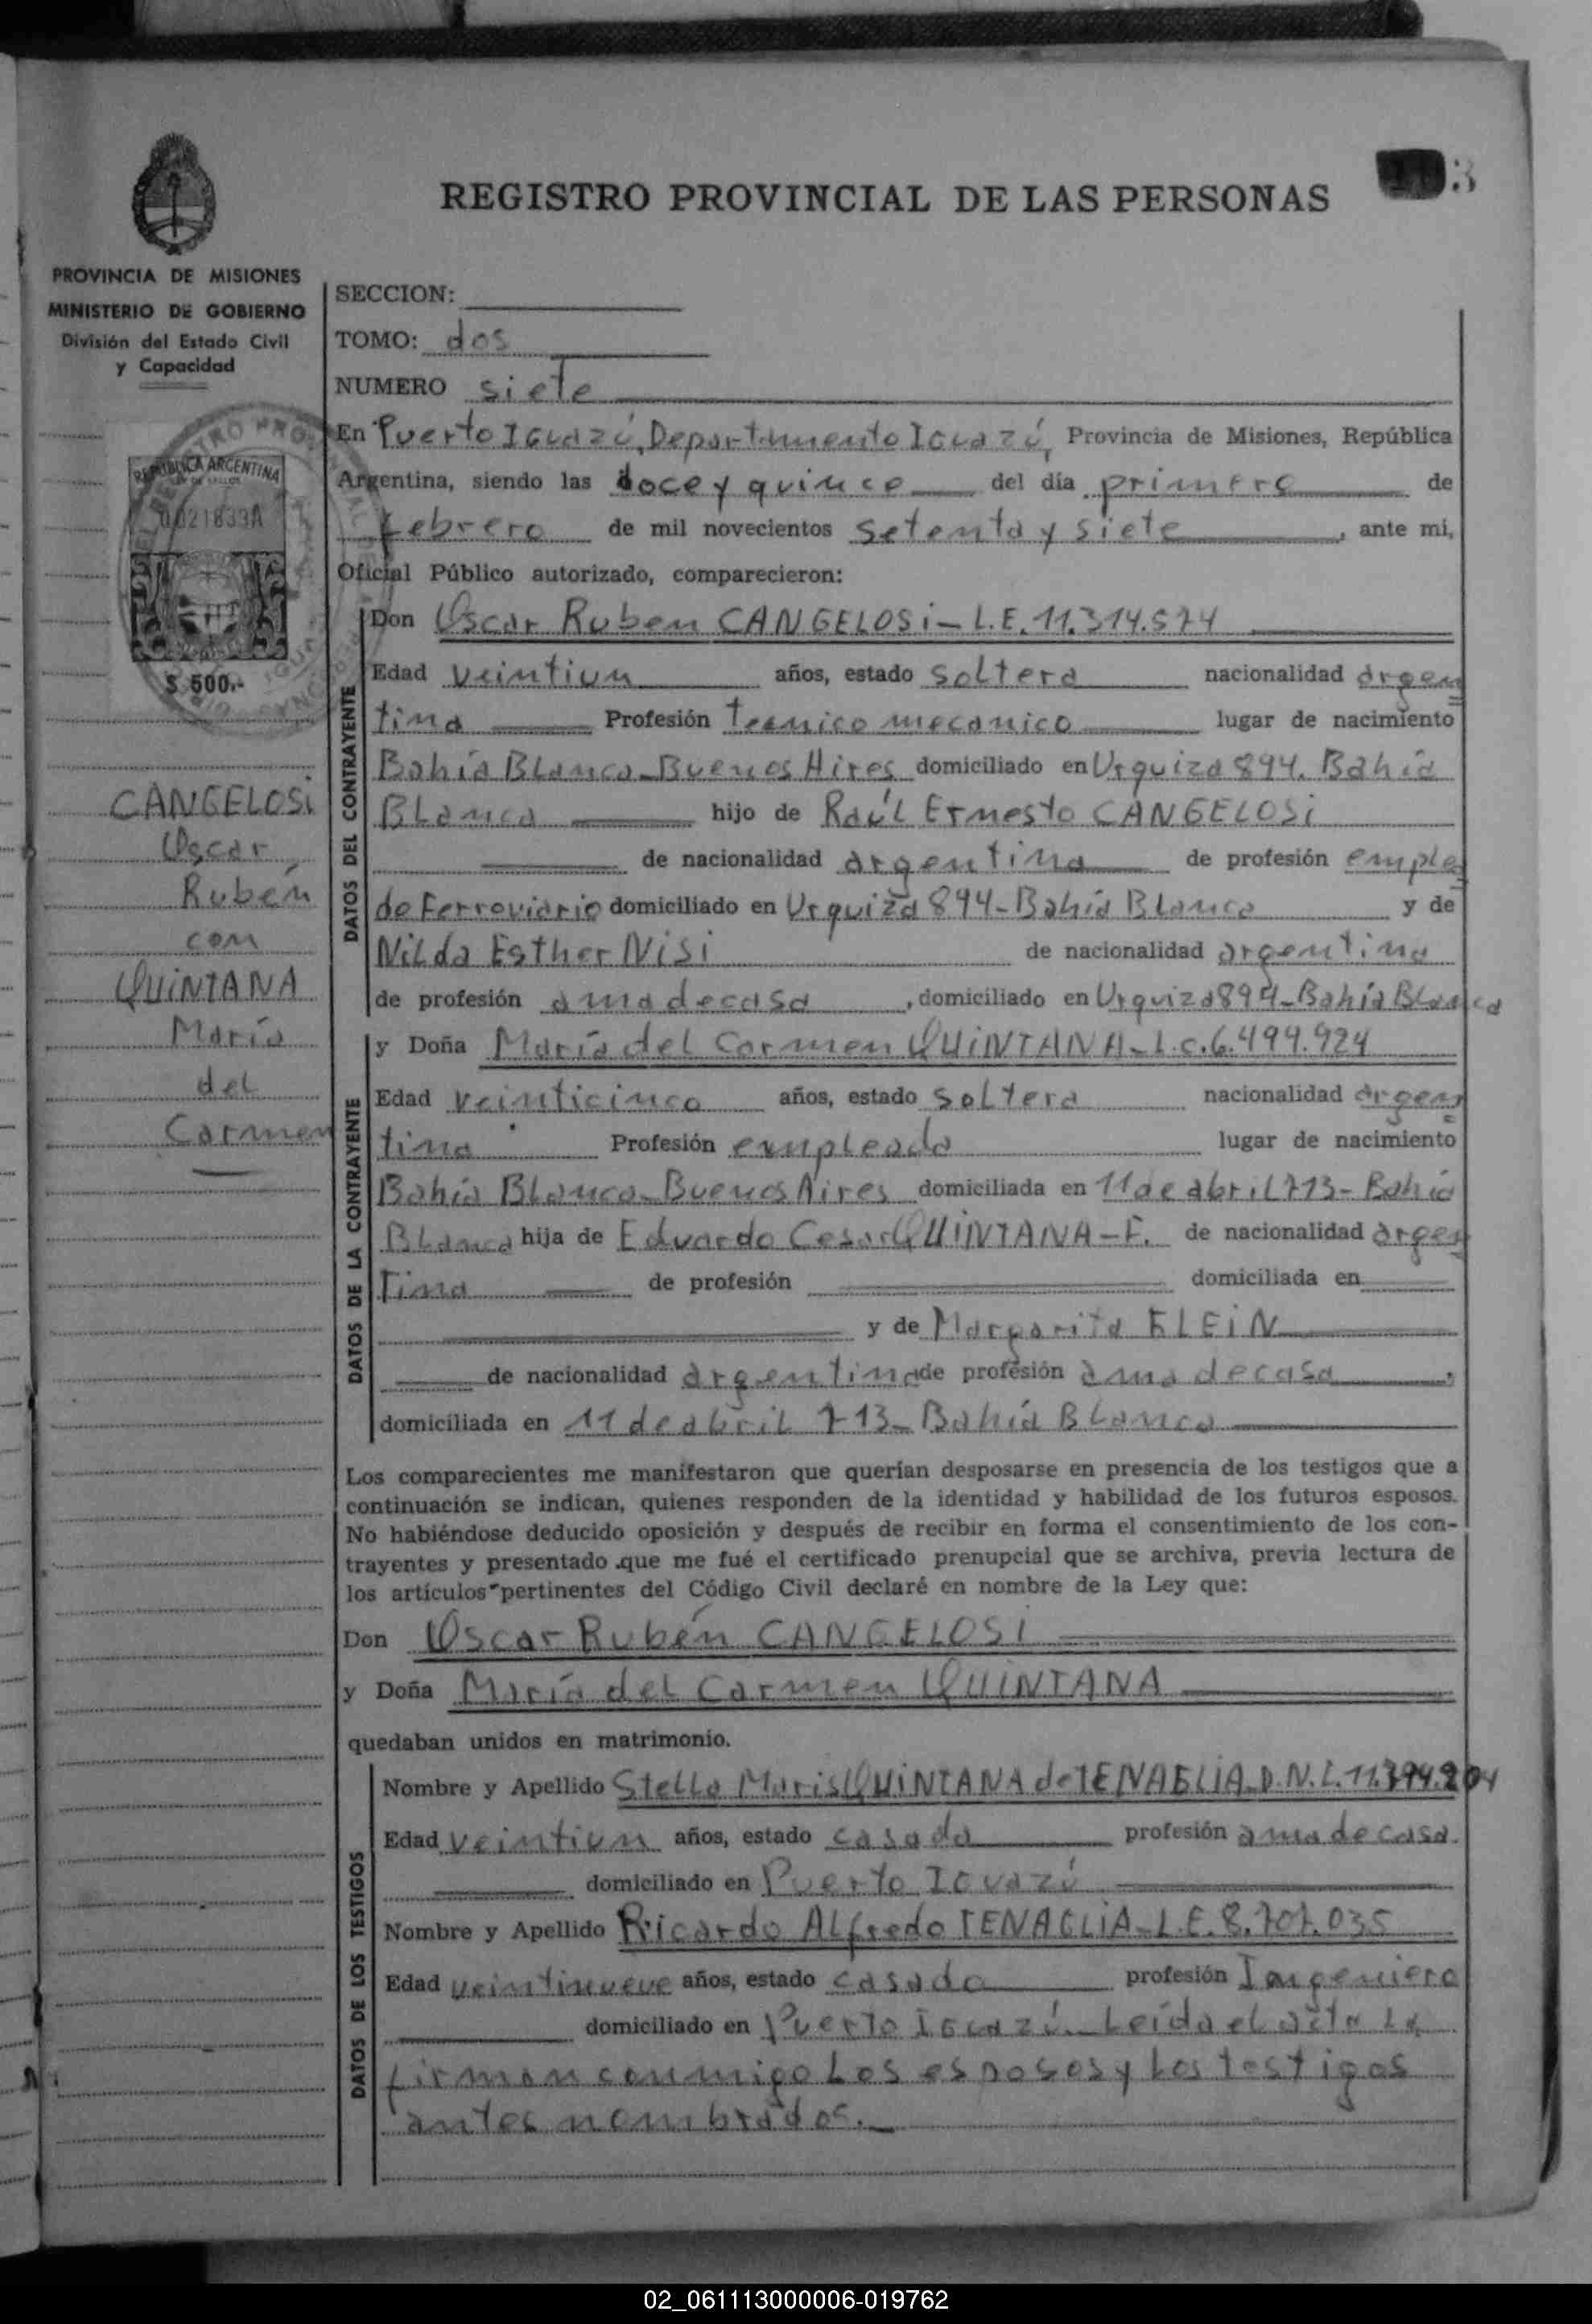 REGISTRO PROVINCIAL DE LAS PERSONAS
3
PROVINCIA DE MISIONES
MINISTERIO DE GOBIERNO
División del Estado Civil
y Capacidad
REPUBLICA ARGENTINA
0021833A
$ 500.-
CANGELOSi
Oscar
Rubén
con
QUiNTANA
María
del
Carmen
SECCION:
TOMO: dos
NUMERO siete
En Puerto IGuazú, Departamento IGuazú, Provincia de Misiones, República
Argentina, siendo las doce y quince del día primero de
febrero de mil novecientos setenta y siete, ante mi,
Oficial Público autorizado, comparecieron:
DATOS DEL CONTRAYENTE
Don Oscar Ruben CANGELOSi - L.E. 11.314.574
Edad veintiun años, estado soltera nacionalidad argen
tina Profesión tecnico mecanico lugar de nacimiento
Bahía Blanca - Buenos Aires domiciliado en Urquiza 894. Bahía
Blanca hijo de Raúl Ernesto CANGELOSi
de nacionalidad argentina de profesión emplea
do Ferroviario domiciliado en Urquiza 894 - Bahía Blanca y de
Nilda Esther NiSi de nacionalidad argentina
de profesión ama de casa, domiciliado en Urquiza 894 - Bahía Blanca
DATOS DE LA CONTRAYENTE
y Doña María del Carmen QUiNTANA - L.C. 6.499.924
Edad veinticinco años, estado soltera nacionalidad argen
tina Profesión empleada lugar de nacimiento
Bahía Blanca - Buenos Aires domiciliada en 11 de abril 713 - Bahía
Blanca hija de Eduardo Cesar QUiNTANA - F. de nacionalidad argen
tina de profesión domiciliada en
y de Margarita KLEiN
de nacionalidad argentina de profesión ama de casa,
domiciliada en 11 de abril 713 - Bahía Blanca
Los comparecientes me manifestaron que querían desposarse en presencia de los testigos que a
continuación se indican, quienes responden de la identidad y habilidad de los futuros esposos.
No habiéndose deducido oposición y después de recibir en forma el consentimiento de los con-
trayentes y presentado que me fué el certificado prenupcial que se archiva, previa lectura de
los artículos pertinentes del Código Civil declaré en nombre de la Ley que:
Don Oscar Rubén CANGELOSi
y Doña María del Carmen QUiNTANA
quedaban unidos en matrimonio.
DATOS DE LOS TESTIGOS
Nombre y Apellido Stella Maris QUiNTANA de TENAGLiA - D.N.I. 11.394.204
Edad veintiun años, estado casada profesión ama de casa.
domiciliado en Puerto IGuazú
Nombre y Apellido Ricardo Alfredo TENAGLiA - L.E. 8.707.035
Edad veintinueve años, estado casado profesión Ingeniero
domiciliado en Puerto IGuazú. Leída el acta la
firman conmigo los esposos y los testigos
antes nombrados.
02_061113000006-019762